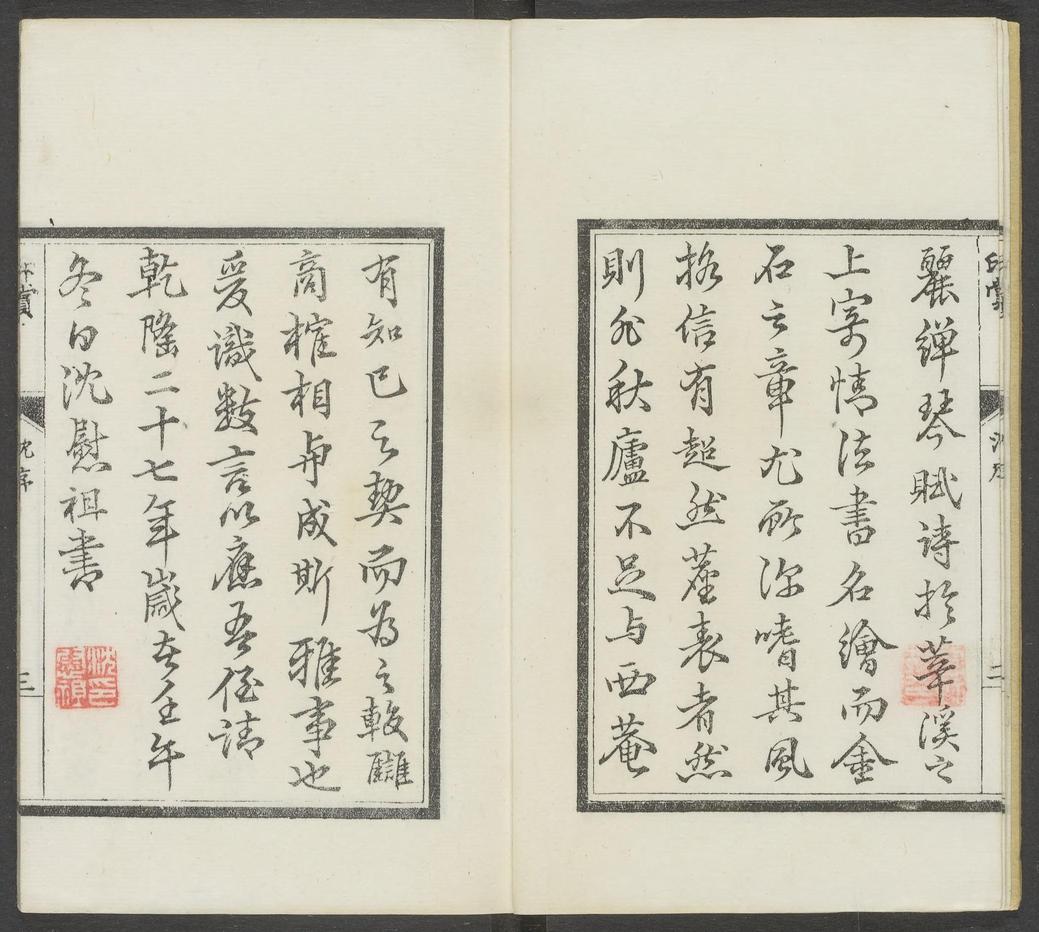 麗彈琴賦詩於莘溪之
上寄情法書名繪而金
石之章尤所深嗜其風
格信有超然塵表者然
則非秋廬不足与西菴
有知己之契而為之較讎
商榷相与成斯雅事也
爰識數言以應吾侄請
乾隆二十七年歲在壬午
冬日沈慰祖書
沈序
二
沈序
三